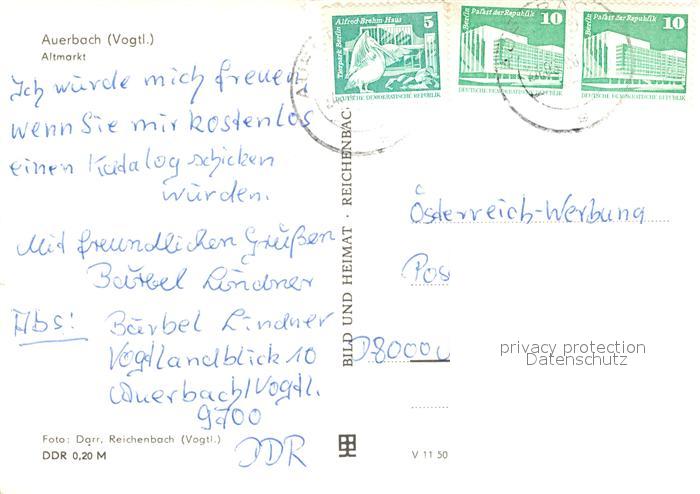 Auerbach (Vogtl.)
Altmarkt
Ich würde mich freuen
wenn Sie mir kostenlos
einen Katalog schicken
würden.
Mit freundlichen Grüßen
Bärbel Lindner
Abs: Bärbel Lindner
Vogtlandblick 10
Auerbach/Vogtl.
9700
DDR
Foto: Darr, Reichenbach (Vogtl.)
DDR 0,20 M
BILD UND HEIMAT · REICHENBAC
V 11 50
Alfred-Brehm-Haus 5
Tierpark Berlin
DEUTSCHE DEMOKRATISCHE REPUBLIK
Palast der Republik 10
Berlin
DEUTSCHE DEMOKRATISCHE REPUBLIK
Palast der Republik 10
Berlin
DEUTSCHE DEMOKRATISCHE REPUBLIK
Österreich-Werbung
Pos
D8000
privacy protection
Datenschutz